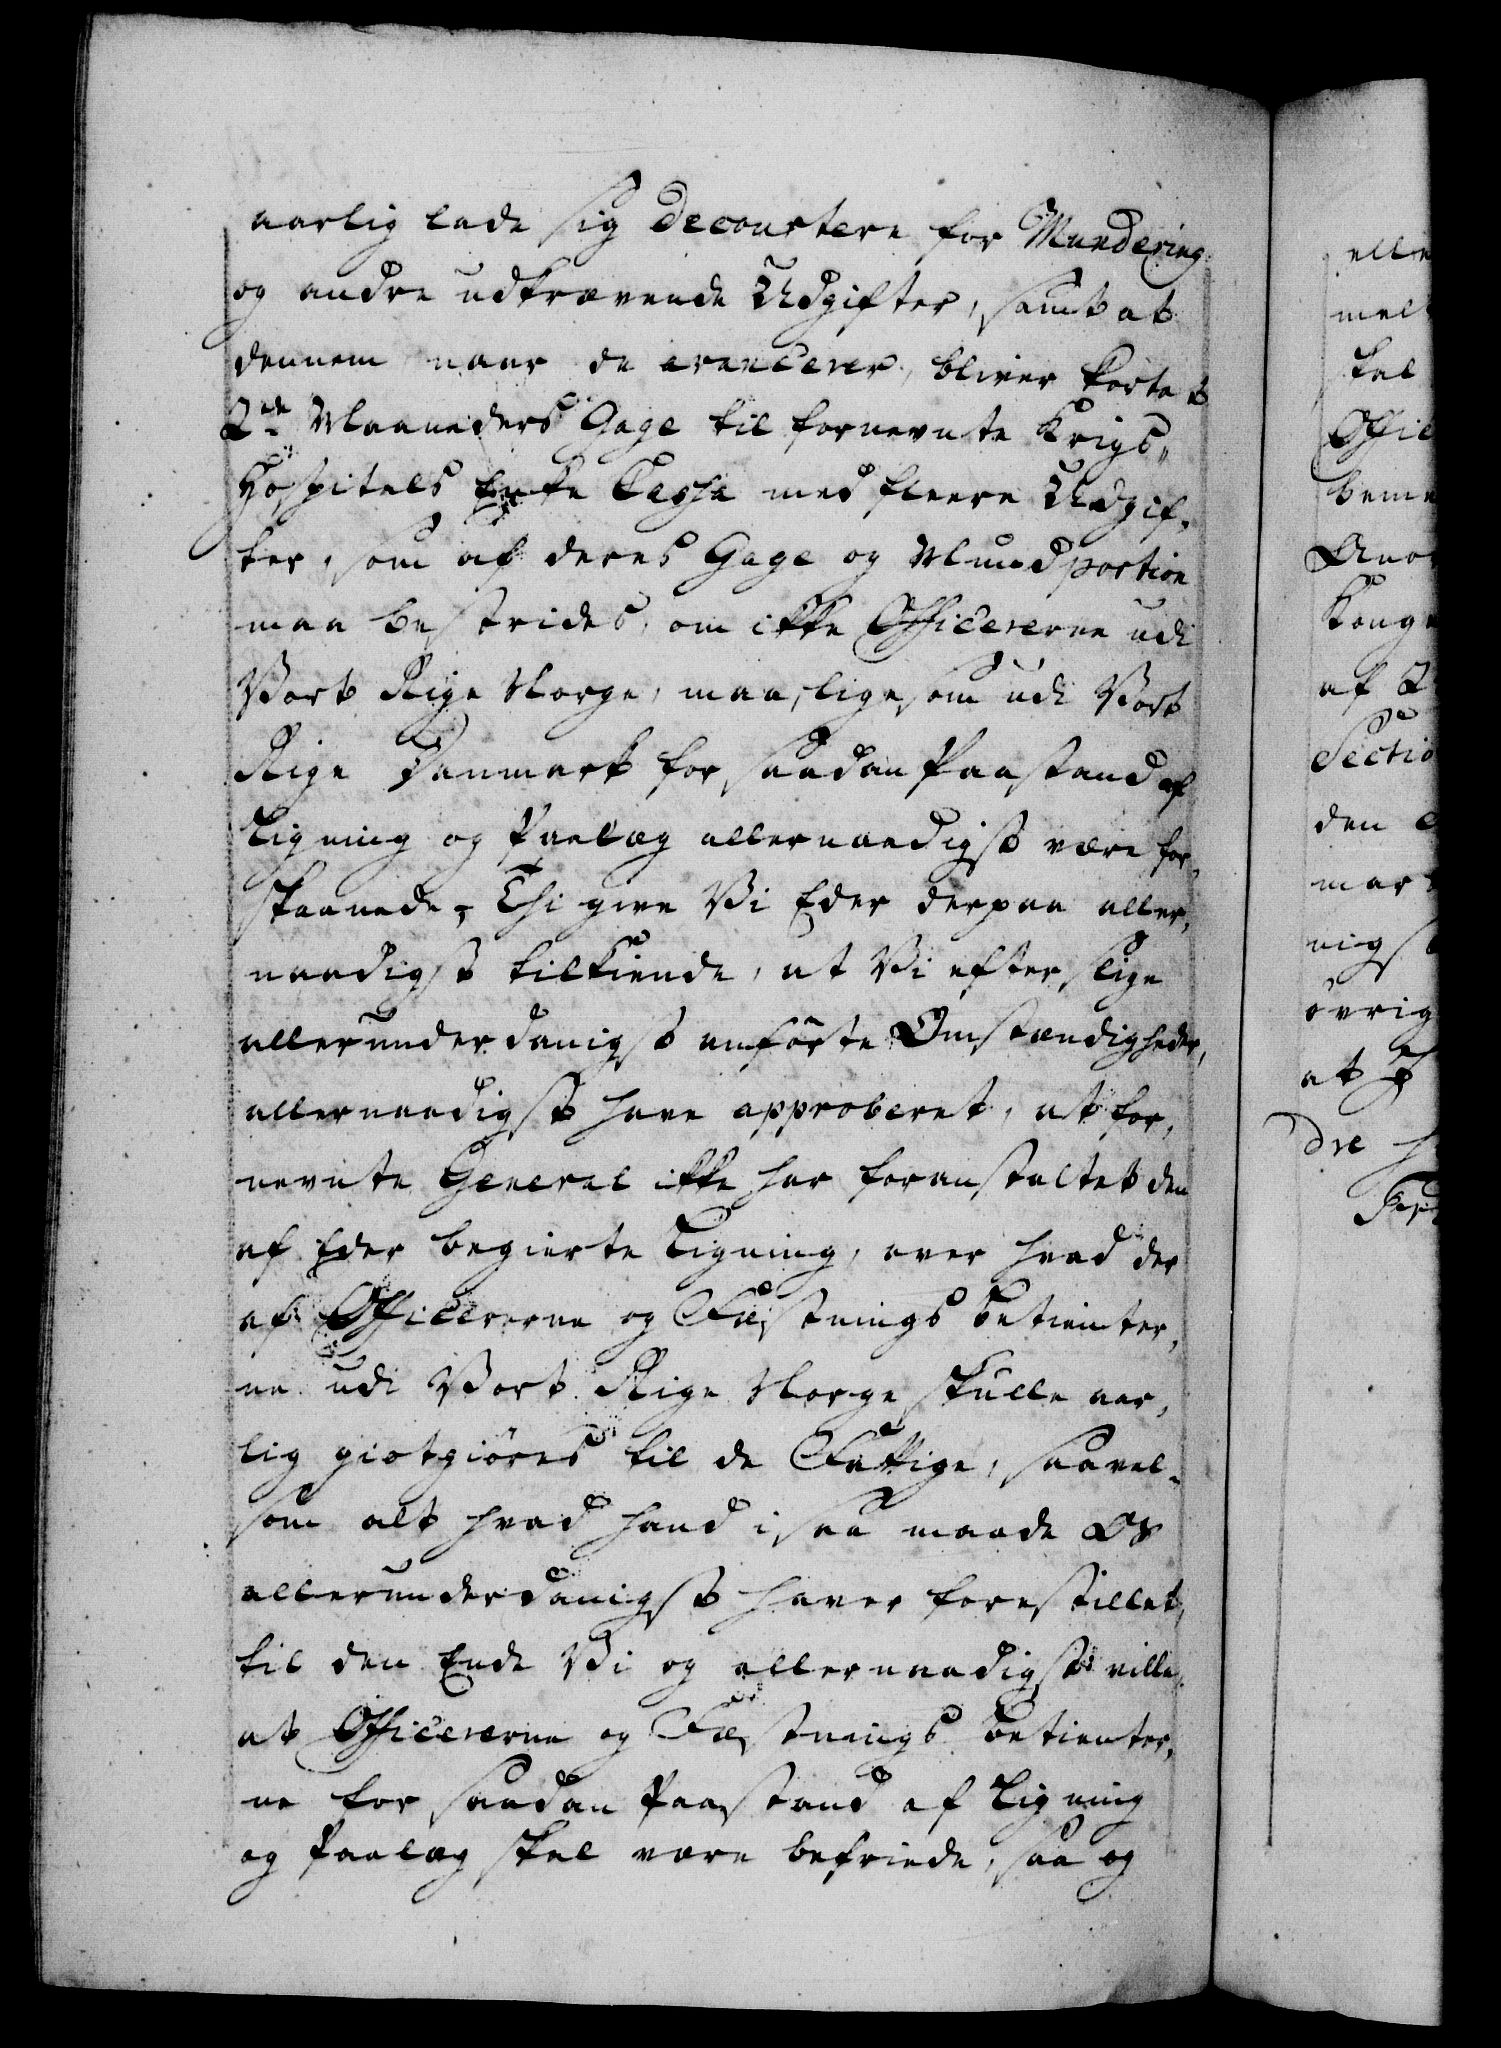 aarlig lade sig decourtere for Mundering
og andre udkrævende Udgifter, samt at
dennem naar de avancerer, bliver kortet
2de Maaneders Gage til fornevnte Krigs„
Hospitals Enke Cassa med fleere Udgif„
ter, som af deres Gage og Mundportion
maa bestrides, om ikke Officererne udi
Vort Rige Norge, maa, ligesom udi Vort
Rige Danmark for saadan Paastand af
Ligning og Paalæg allernaadigst være for„
skaanede; Thi give Vi Eder derpaa aller„
naadigst tilkiende, at Vi efter slige
allerunderdanigst anförte Omstændigheder,
allernaadigst have approberet, at for„
nevnte General ikke har foranstaltet den
af Eder begierte Ligning, over hvad der
af Officererne og Fæstnings Betienter„
ne udi Vort Rige Norge skulle aar„
lig giotgiöres til de Fattige, saavel„
som alt hvad hand i saa maade Os
allerunderdanigst haver forestillet,
til den Ende Vi og allernaadigst ville,
at Officererne og Fæstnings Betienter„
ne for saadan Paastand af Ligning
og Paalæg skal være befriede, saa og
elle
mel
skal
Offic
beme
Kong
af 2
Sectio
den
mar
nigst
övrig
at
dre